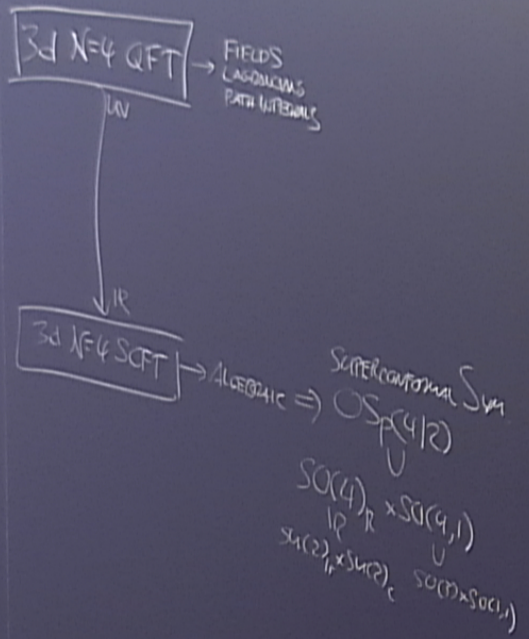 3d N=4 QFT → FIELDS
LAGRANGIANS
PATH INTEGRALS
UV
IR
3d N=4 SCFT → ALGEBRAIC ⇒
SUPERCONFORMAL Sym
OSp(4|2)
∪
SO(4)_R × SO(4,1)
∪
SU(2)_H × SU(2)_C
SO(3)×SO(1,1)